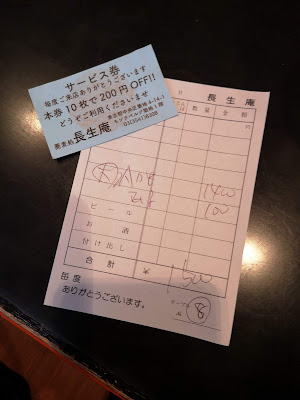 サービス券
毎度ご来店ありがとうございます
本券10枚で200円OFF!!
どうぞご利用くださいませ
蕎麦処 長生庵
東京都中央区築地4-14-1
モンテベルデ築地1階
長生庵
数量 金額
1400
100
ビール
お酒
付け出し
合計 ¥ 1500
毎度
ありがとうございます。
テーブル
No. 8